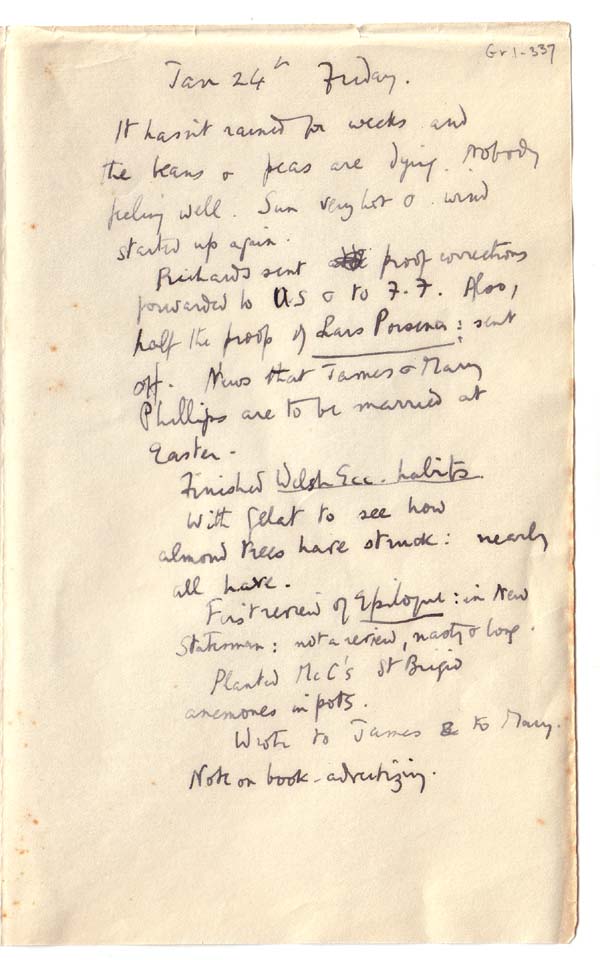 Gr 1-337
Jan 24th Friday.
It hasn't rained for weeks and
the beans & peas are dying. Nobody
feeling well. Sun very hot & wind
started up again.
Richards sent proof corrections
forwarded to US & to F.F. Also,
half the proofs of Lars Porsena: sent
off. News that James & Mary
Phillips are to be married at
Easter.
Finished Welsh Ecc. habits.
With Gelat to see how
almond trees have struck: nearly
all have.
First review of Epilogue: in New
Statesman: not a review, nasty & long.
Planted McC's St Brigid
anemones in pots.
Wrote to James & to Mary.
Note on book-advertizing.